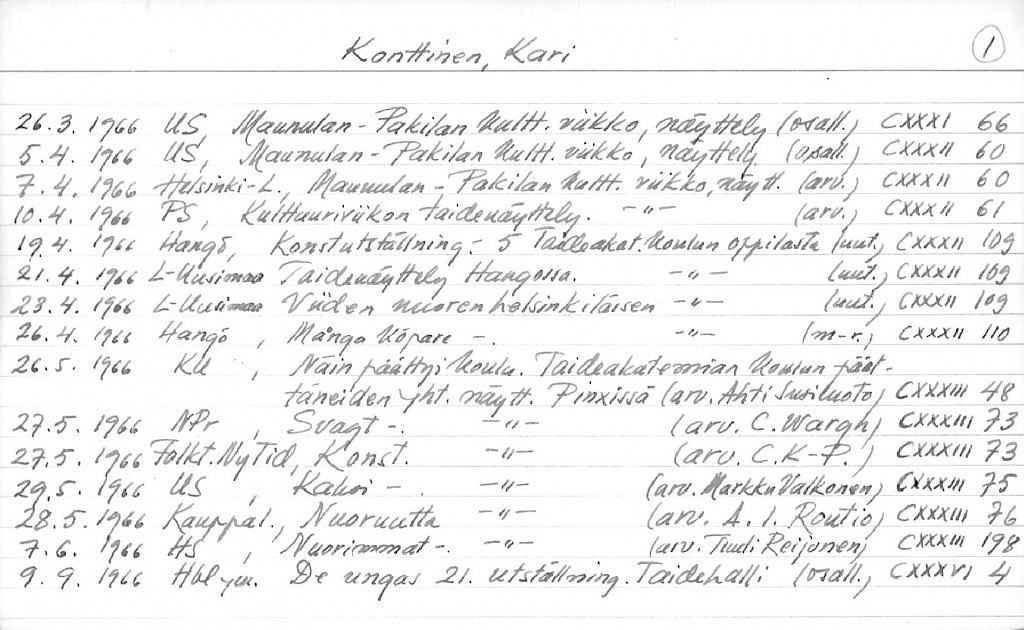 Konttinen, Kari 1
26.3. 1966 US, Maunulan-Pakilan Kultt. viikko, näyttely (osall.) CXXXI 66
5.4. 1966 US, Maunulan-Pakilan Kultt. viikko, näyttely (osall.) CXXXII 60
7.4. 1966 Helsinki-L., Maunulan-Pakilan Kultt. viikko, näytt. (arv.) CXXXII 60
10.4. 1966 PS, Kulttuuriviikon taidenäyttely. -"- (arv.) CXXXII 61
19.4. 1966 Hangö, Konstutställning - 5 Taideakat. Koulun oppilasta (uut.) CXXXII 109
21.4. 1966 L-Uusimaa Taidenäyttely Hangossa. -"- (uut.) CXXXII 109
23.4. 1966 L-Uusimaa Viiden nuoren helsinkiläisen -"- (uut.) CXXXII 109
26.4. 1966 Hangö, Många köpare -. -"- (m-r.) CXXXII 110
26.5. 1966 KU, Näin päättyi koulu. Taideakatemian Koulun päät-
täneiden yht. näytt. Pinxissä (arv. Ahti Susiluoto) CXXXIII 48
27.5. 1966 NPr, Svagt -. -"- (arv. C. Wargh) CXXXIII 73
27.5. 1966 Folkt. Ny Tid, Konst. -"- (arv. C.K-P.) CXXXIII 73
29.5. 1966 US, Kahvi -. -"- (arv. Markku Valkonen) CXXXIII 75
28.5. 1966 Kauppal., Nuoruutta -"- (arv. A. I. Routio) CXXXIII 76
7.6. 1966 HS, Nuorimmat -. -"- (arv. Tuuli Reijonen) CXXXIII 198
9.9. 1966 Hbl ym. De ungas 21. utställning. Taidehalli (osall.) CXXXVI 4